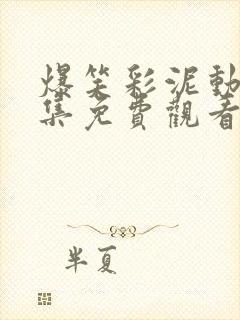 爆笑彩泥動
集免費觀看
半夏